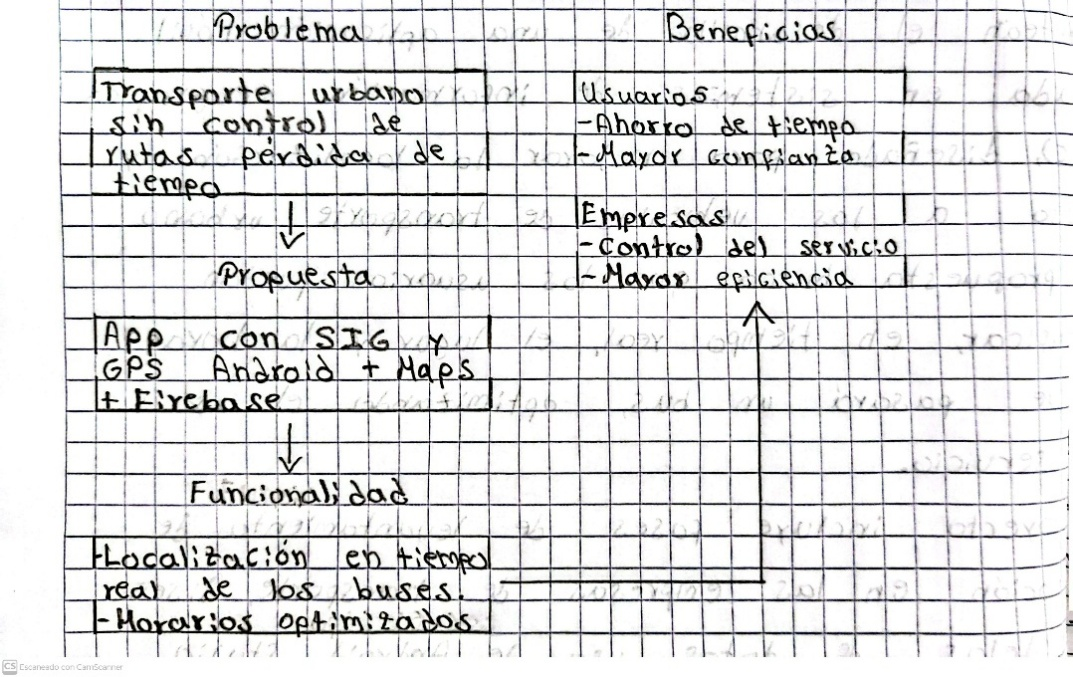 Problema
Transporte urbano
sin control de
rutas pérdida de
tiempo
Propuesta
App con SIG y
GPS Android + Maps
+ Firebase
Funcionalidad
-Localización en tiempo
real de los buses.
-Horarios optimizados
Beneficios
Usuarios
-Ahorro de tiempo
-Mayor confianza
Empresas
-Control del servicio
-Mayor eficiencia
CS Escaneado con CamScanner